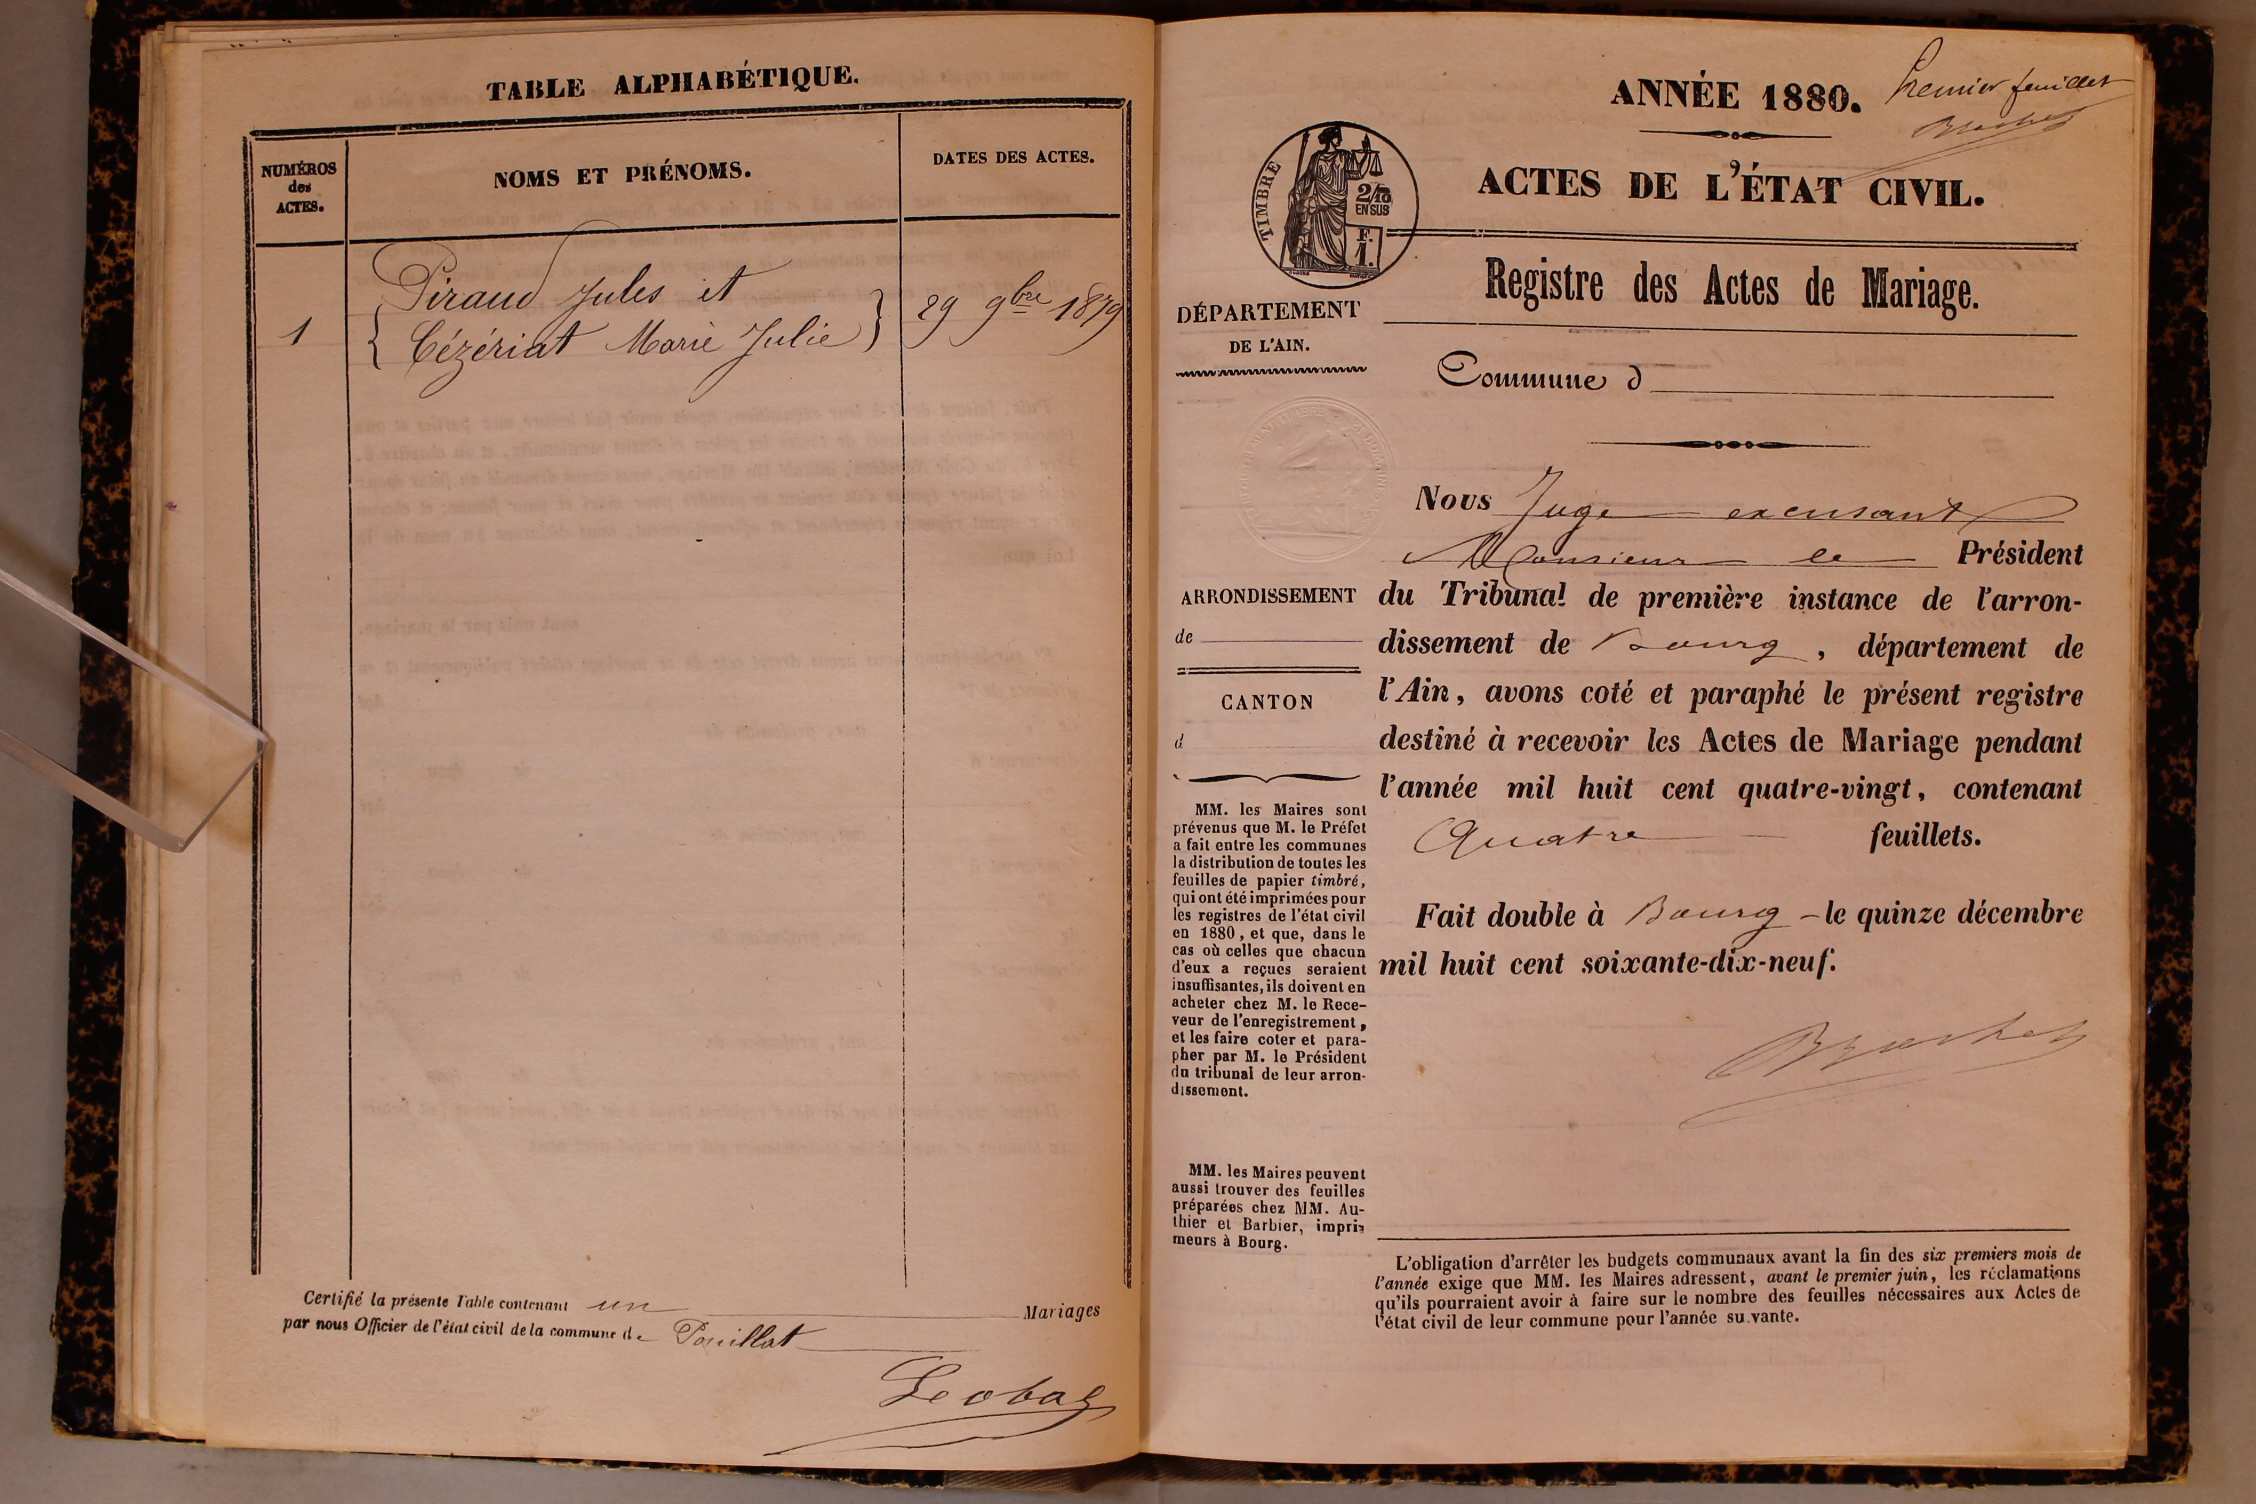 TABLE ALPHABÉTIQUE.
NUMÉROS
des
ACTES.
NOMS ET PRÉNOMS.
DATES DES ACTES.
1
Piraud Jules et
Cézériat Marie Julie
29 9bre 1879
Certifié la présente Table contenant un Mariages
par nous Officier de l'état civil de la commune de Pouillat
ANNÉE 1880.
Premier feuillet
ACTES DE L'ÉTAT CIVIL.
TIMBRE
2/10
EN SUS
F.
1.
Registre des Actes de Mariage.
DÉPARTEMENT
DE L'AIN.
Commune d
Nous Juge excusant
Monsieur le Président
ARRONDISSEMENT
de
CANTON
d
du Tribunal de première instance de l'arron-
dissement de Bourg, département de
l'Ain, avons coté et paraphé le présent registre
destiné à recevoir les Actes de Mariage pendant
l'année mil huit cent quatre-vingt, contenant
Quatre feuillets.
Fait double à Bourg - le quinze décembre
mil huit cent soixante-dix-neuf.
MM. les Maires sont
prévenus que M. le Préfet
a fait entre les communes
la distribution de toutes les
feuilles de papier timbré,
qui ont été imprimées pour
les registres de l'état civil
en 1880, et que, dans le
cas où celles que chacun
d'eux a reçues seraient
insuffisantes, ils doivent en
acheter chez M. le Rece-
veur de l'enregistrement,
et les faire coter et para-
pher par M. le Président
du tribunal de leur arron-
dissement.
MM. les Maires peuvent
aussi trouver des feuilles
préparées chez MM. Au-
thier et Barbier, impri-
meurs à Bourg.
L'obligation d'arrêter les budgets communaux avant la fin des six premiers mois de
l'année exige que MM. les Maires adressent, avant le premier juin, les réclamations
qu'ils pourraient avoir à faire sur le nombre des feuilles nécessaires aux Actes de
l'état civil de leur commune pour l'année suivante.